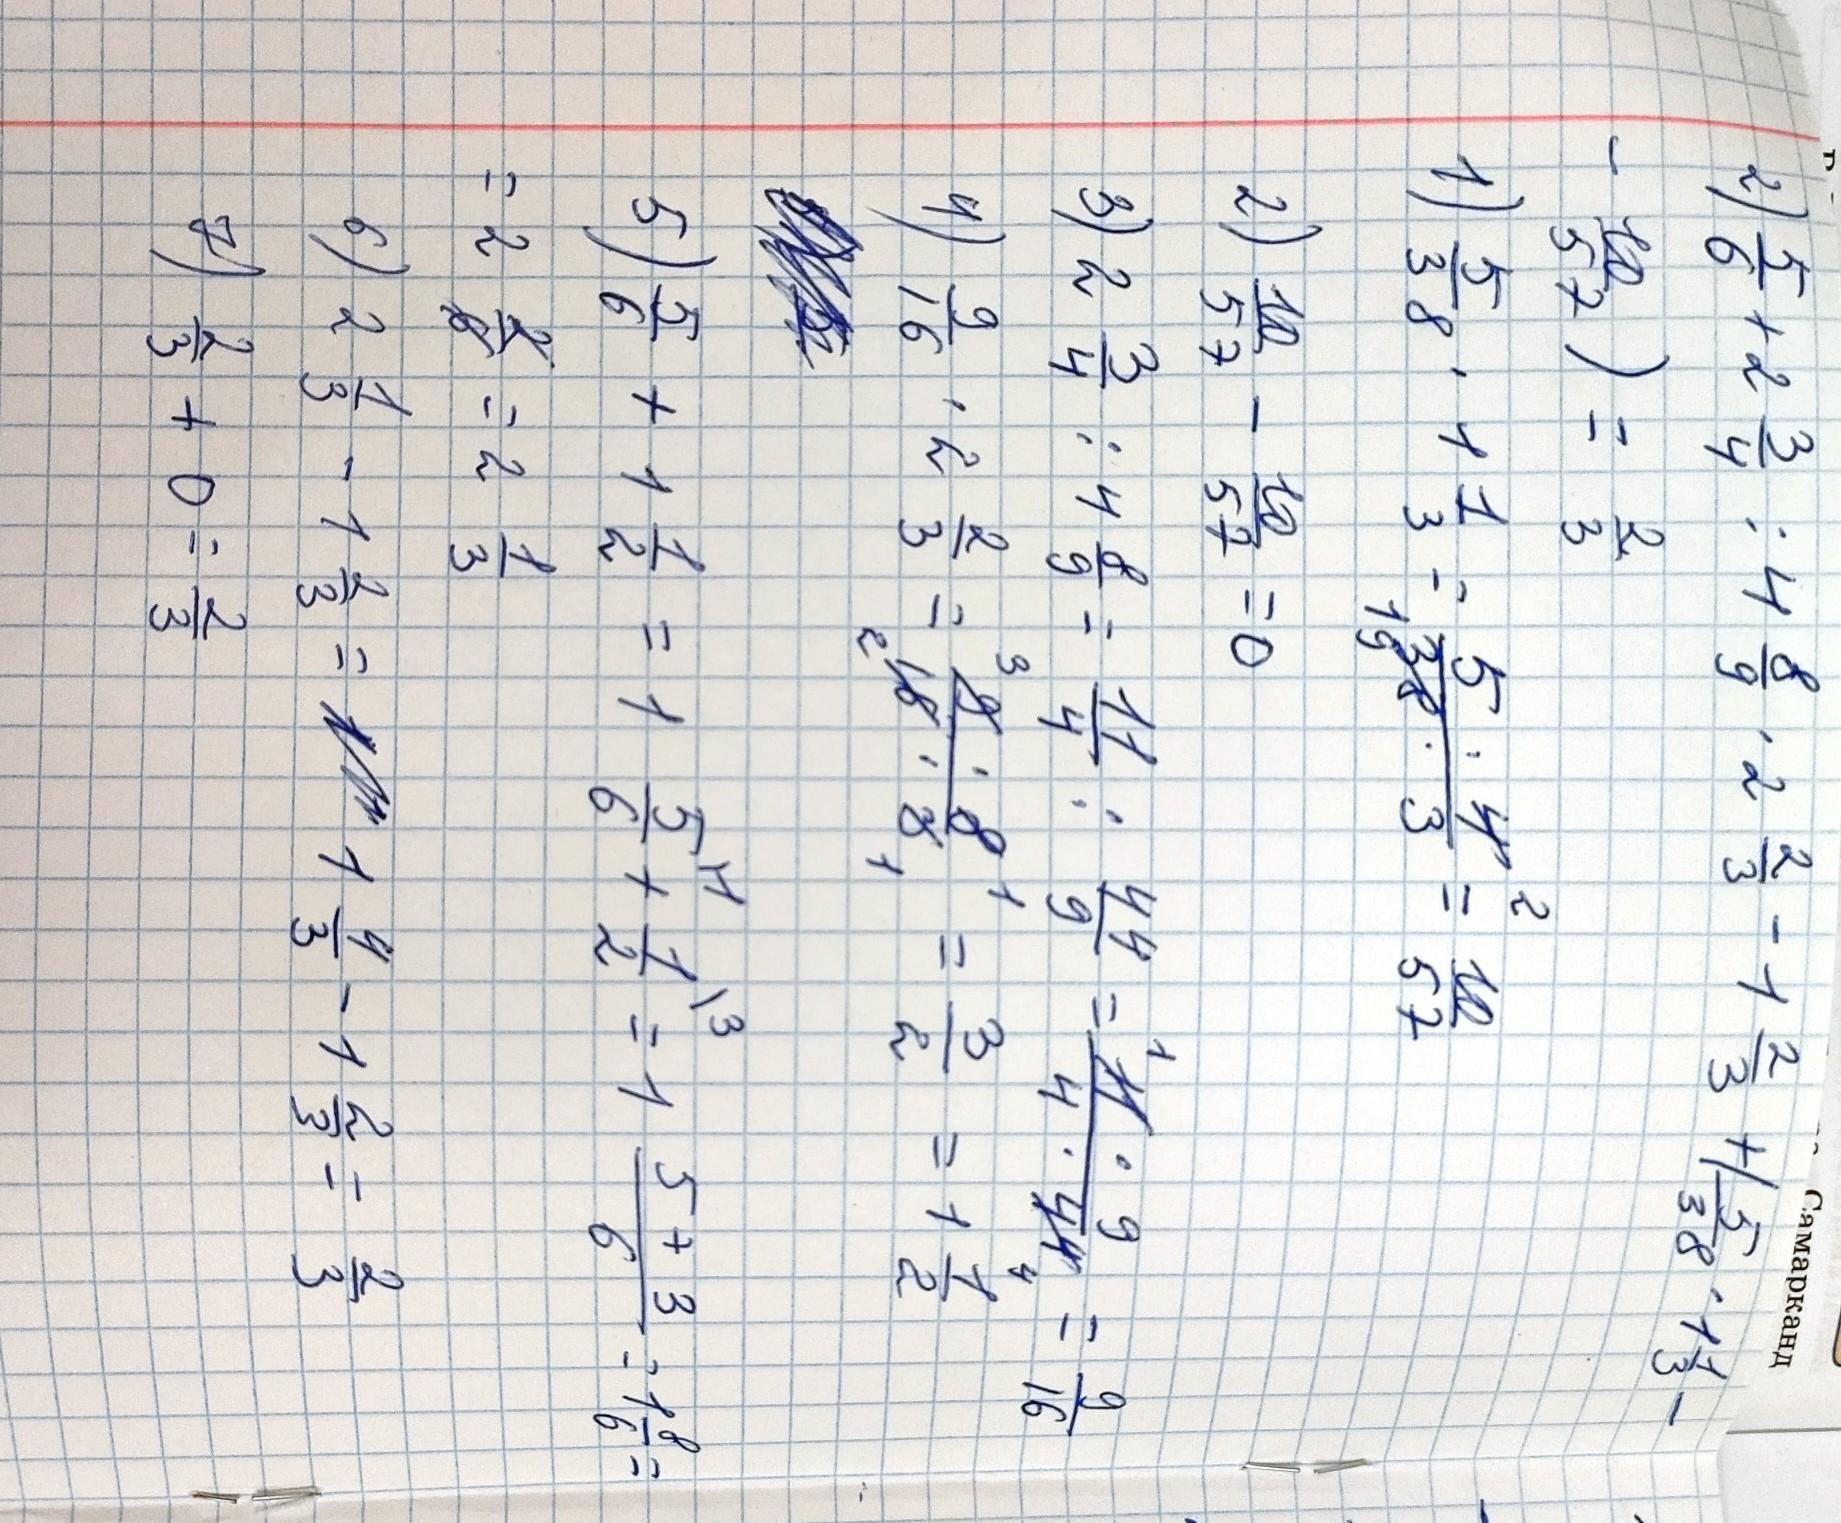 Самарканд
2) 5/6 + 2 3/4 : 4 8/9 · 2 2/3 - 1 2/3 + (5/38 · 1 1/3 -
- 10/57) = 2/3
1) 5/38 · 1 1/3 = 5 · 4 2 / 19 38 · 3 = 10/57
2) 10/57 - 10/57 = 0
3) 2 3/4 : 4 8/9 = 11/4 : 44/9 = 1 11 · 9 / 4 · 44 4 = 9/16
4) 9/16 · 2 2/3 = 3 9 · 8 1 / 2 16 · 3 1 = 3/2 = 1 1/2
5) 5/6 + 1 1/2 = 1 5/6 \1 + 1/2 \3 = 1 5+3/6 = 1 8/6 =
= 2 2/6 = 2 1/3
6) 2 1/3 - 1 2/3 = 1 4/3 - 1 2/3 = 2/3
7) 2/3 + 0 = 2/3